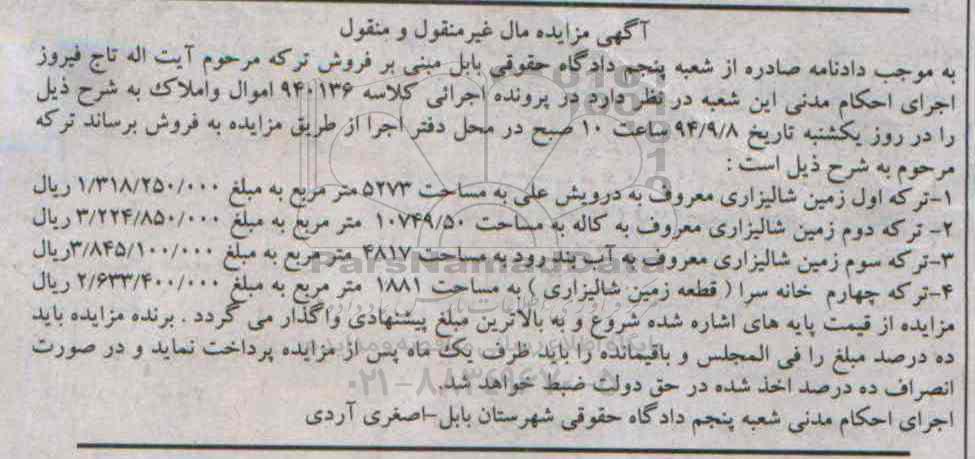 آگهی مزایده مال غیرمنقول و منقول
به موجب دادنامه صادره از شعبه پنجم دادگاه حقوقی بابل مبنی بر فروش ترکه مرحوم آیت اله تاج فیروز
اجرای احکام مدنی این شعبه در نظر دارد در پرونده اجرائی کلاسه ۹۴۰۱۳۶ اموال واملاک به شرح ذیل
را در روز یکشنبه تاریخ ۹۴/۹/۸ ساعت ۱۰ صبح در محل دفتر اجرا از طریق مزایده به فروش برساند ترکه
مرحوم به شرح ذیل است :
۱-ترکه اول زمین شالیزاری معروف به درویش علی به مساحت ۵۲۷۳ متر مربع به مبلغ ۱/۳۱۸/۲۵۰/۰۰۰ ریال
۲- ترکه دوم زمین شالیزاری معروف به کاله به مساحت ۱۰۷۴۹/۵۰ متر مربع به مبلغ ۳/۲۲۴/۸۵۰/۰۰۰ ریال
۳-ترکه سوم زمین شالیزاری معروف به آب بند رود به مساحت ۴۸۱۷ متر مربع به مبلغ ۳/۸۴۵/۱۰۰/۰۰۰ریال
ParsNamadData
۴-ترکه چهارم خانه سرا ( قطعه زمین شالیزاری ) به مساحت ۱۸۸۱ متر مربع به مبلغ ۲/۶۳۳/۴۰۰/۰۰۰ ریال
مزایده از قیمت پایه های اشاره شده شروع و به بالاترین مبلغ پیشنهادی واگذار می گردد . برنده مزایده باید
ده درصد مبلغ را فی المجلس و باقیمانده را باید ظرف یک ماه پس از مزایده پرداخت نماید و در صورت
انصراف ده درصد اخذ شده در حق دولت ضبط خواهد شد.
اجرای احکام مدنی شعبه پنجم دادگاه حقوقی شهرستان بابل-اصغری آردی